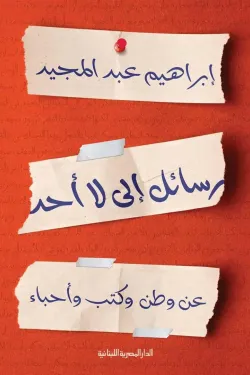 إبراهيم عبد المجيد
رسائل إلى لا أحد
عن وطن وكتب وأحباء
الدار المصرية اللبنانية